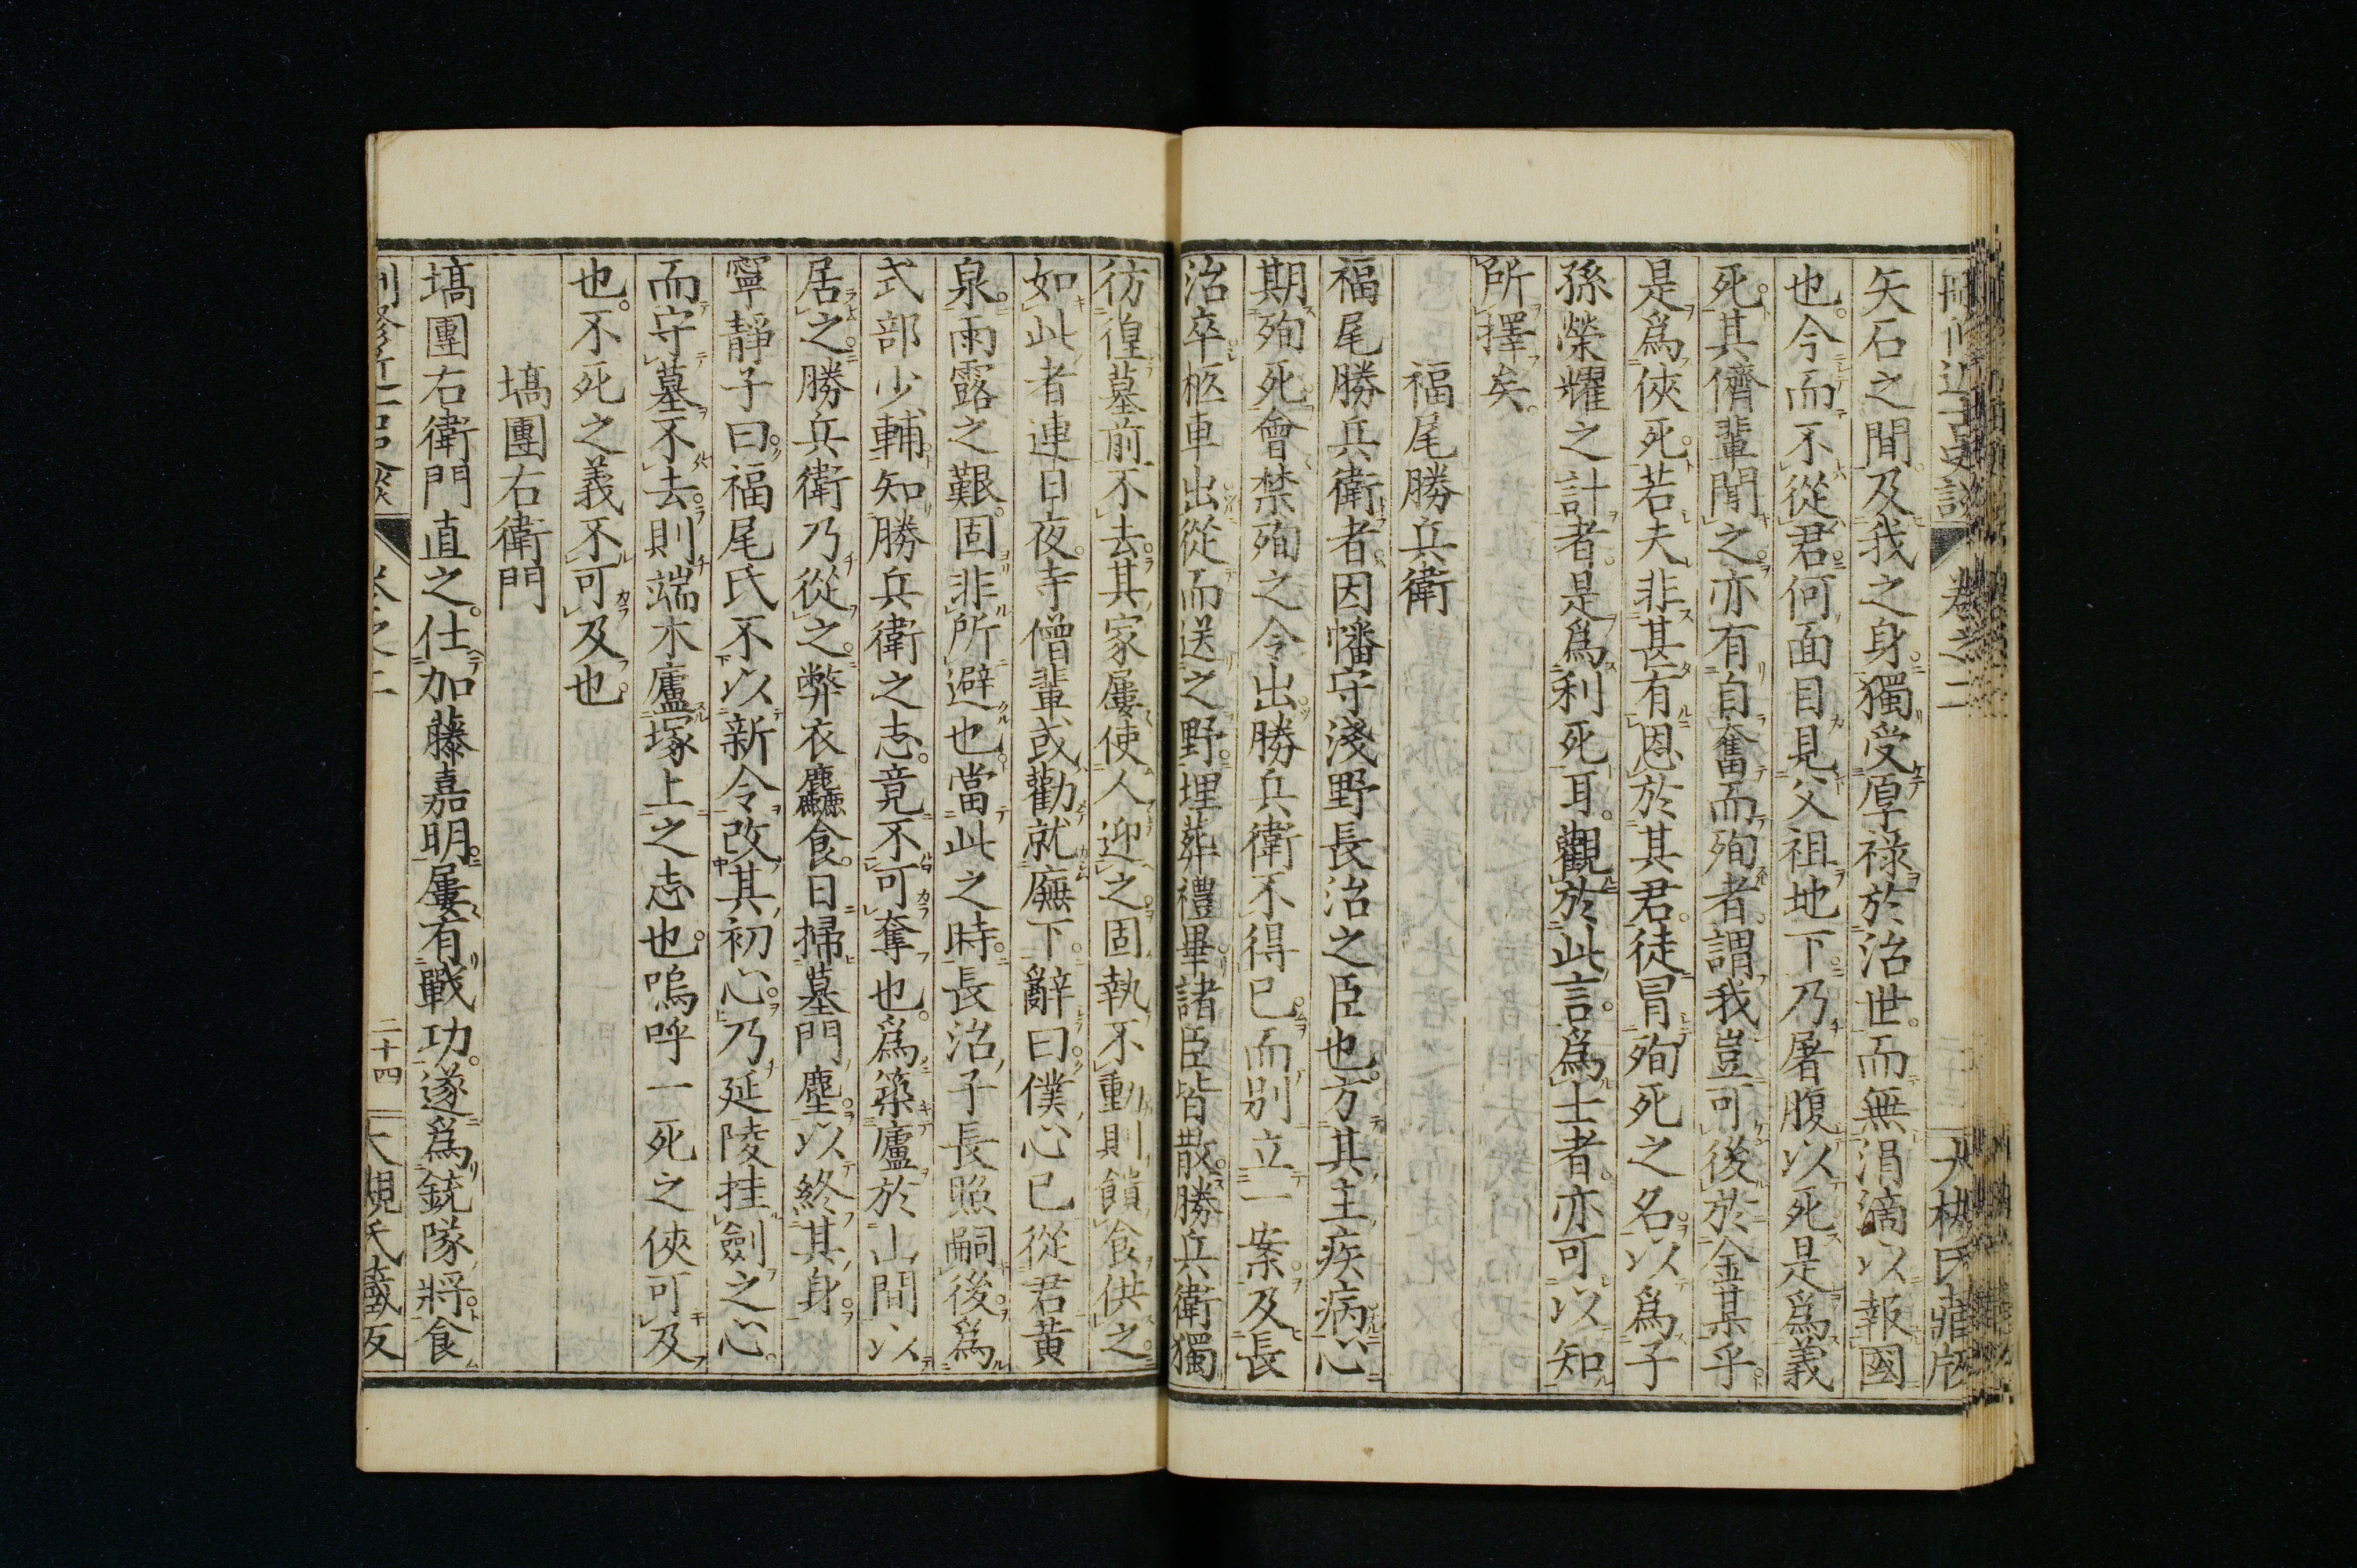 卷之二
矢石之間。及我之身。獨受厚祿於治世。而無涓滴以報國
也。今而不從君。何面目見父祖地下。乃屠腹以死。是爲義
死。其儕輩聞之。亦有自奮而殉者。謂我豈可後於金某乎。
是爲俠死。若夫非甚有恩於其君。徒冒殉死之名。以爲子
孫榮耀之計者。是爲利死耳。觀於此言。爲士者。亦可以知
所擇矣。
福尾勝兵衛
福尾勝兵衛者。因幡守淺野長治之臣也。方其主疾病。心
期殉死。會禁殉之令出。勝兵衛不得已而別立一案。及長
治卒。柩車出。從而送之野。埋葬禮畢。諸臣皆散。勝兵衛獨
彷徨墓前不去。其家屢使人迎之。固執不動。則饋食供之。
如此者連日夜。寺僧輩或勸就廡下。辭曰。僕心已從君黃
泉。雨露之艱。固非所避也。當此之時。長治子長照嗣後。爲
式部少輔。知勝兵衛之志。竟不可奪也。爲築廬於山間以
居之。勝兵衛乃從之。弊衣麤食。日掃墓門塵。以終其身。
寧靜子曰。福尾氏不以新令改其初心。乃延陵挂劍之心。
而守墓不去。則端木廬塚上之志也。嗚呼一死之俠可及
也。不死之義不可及也。
塙團右衛門
塙團右衛門直之。仕加藤嘉明。屢有戰功。遂爲銃隊將。食
二十四